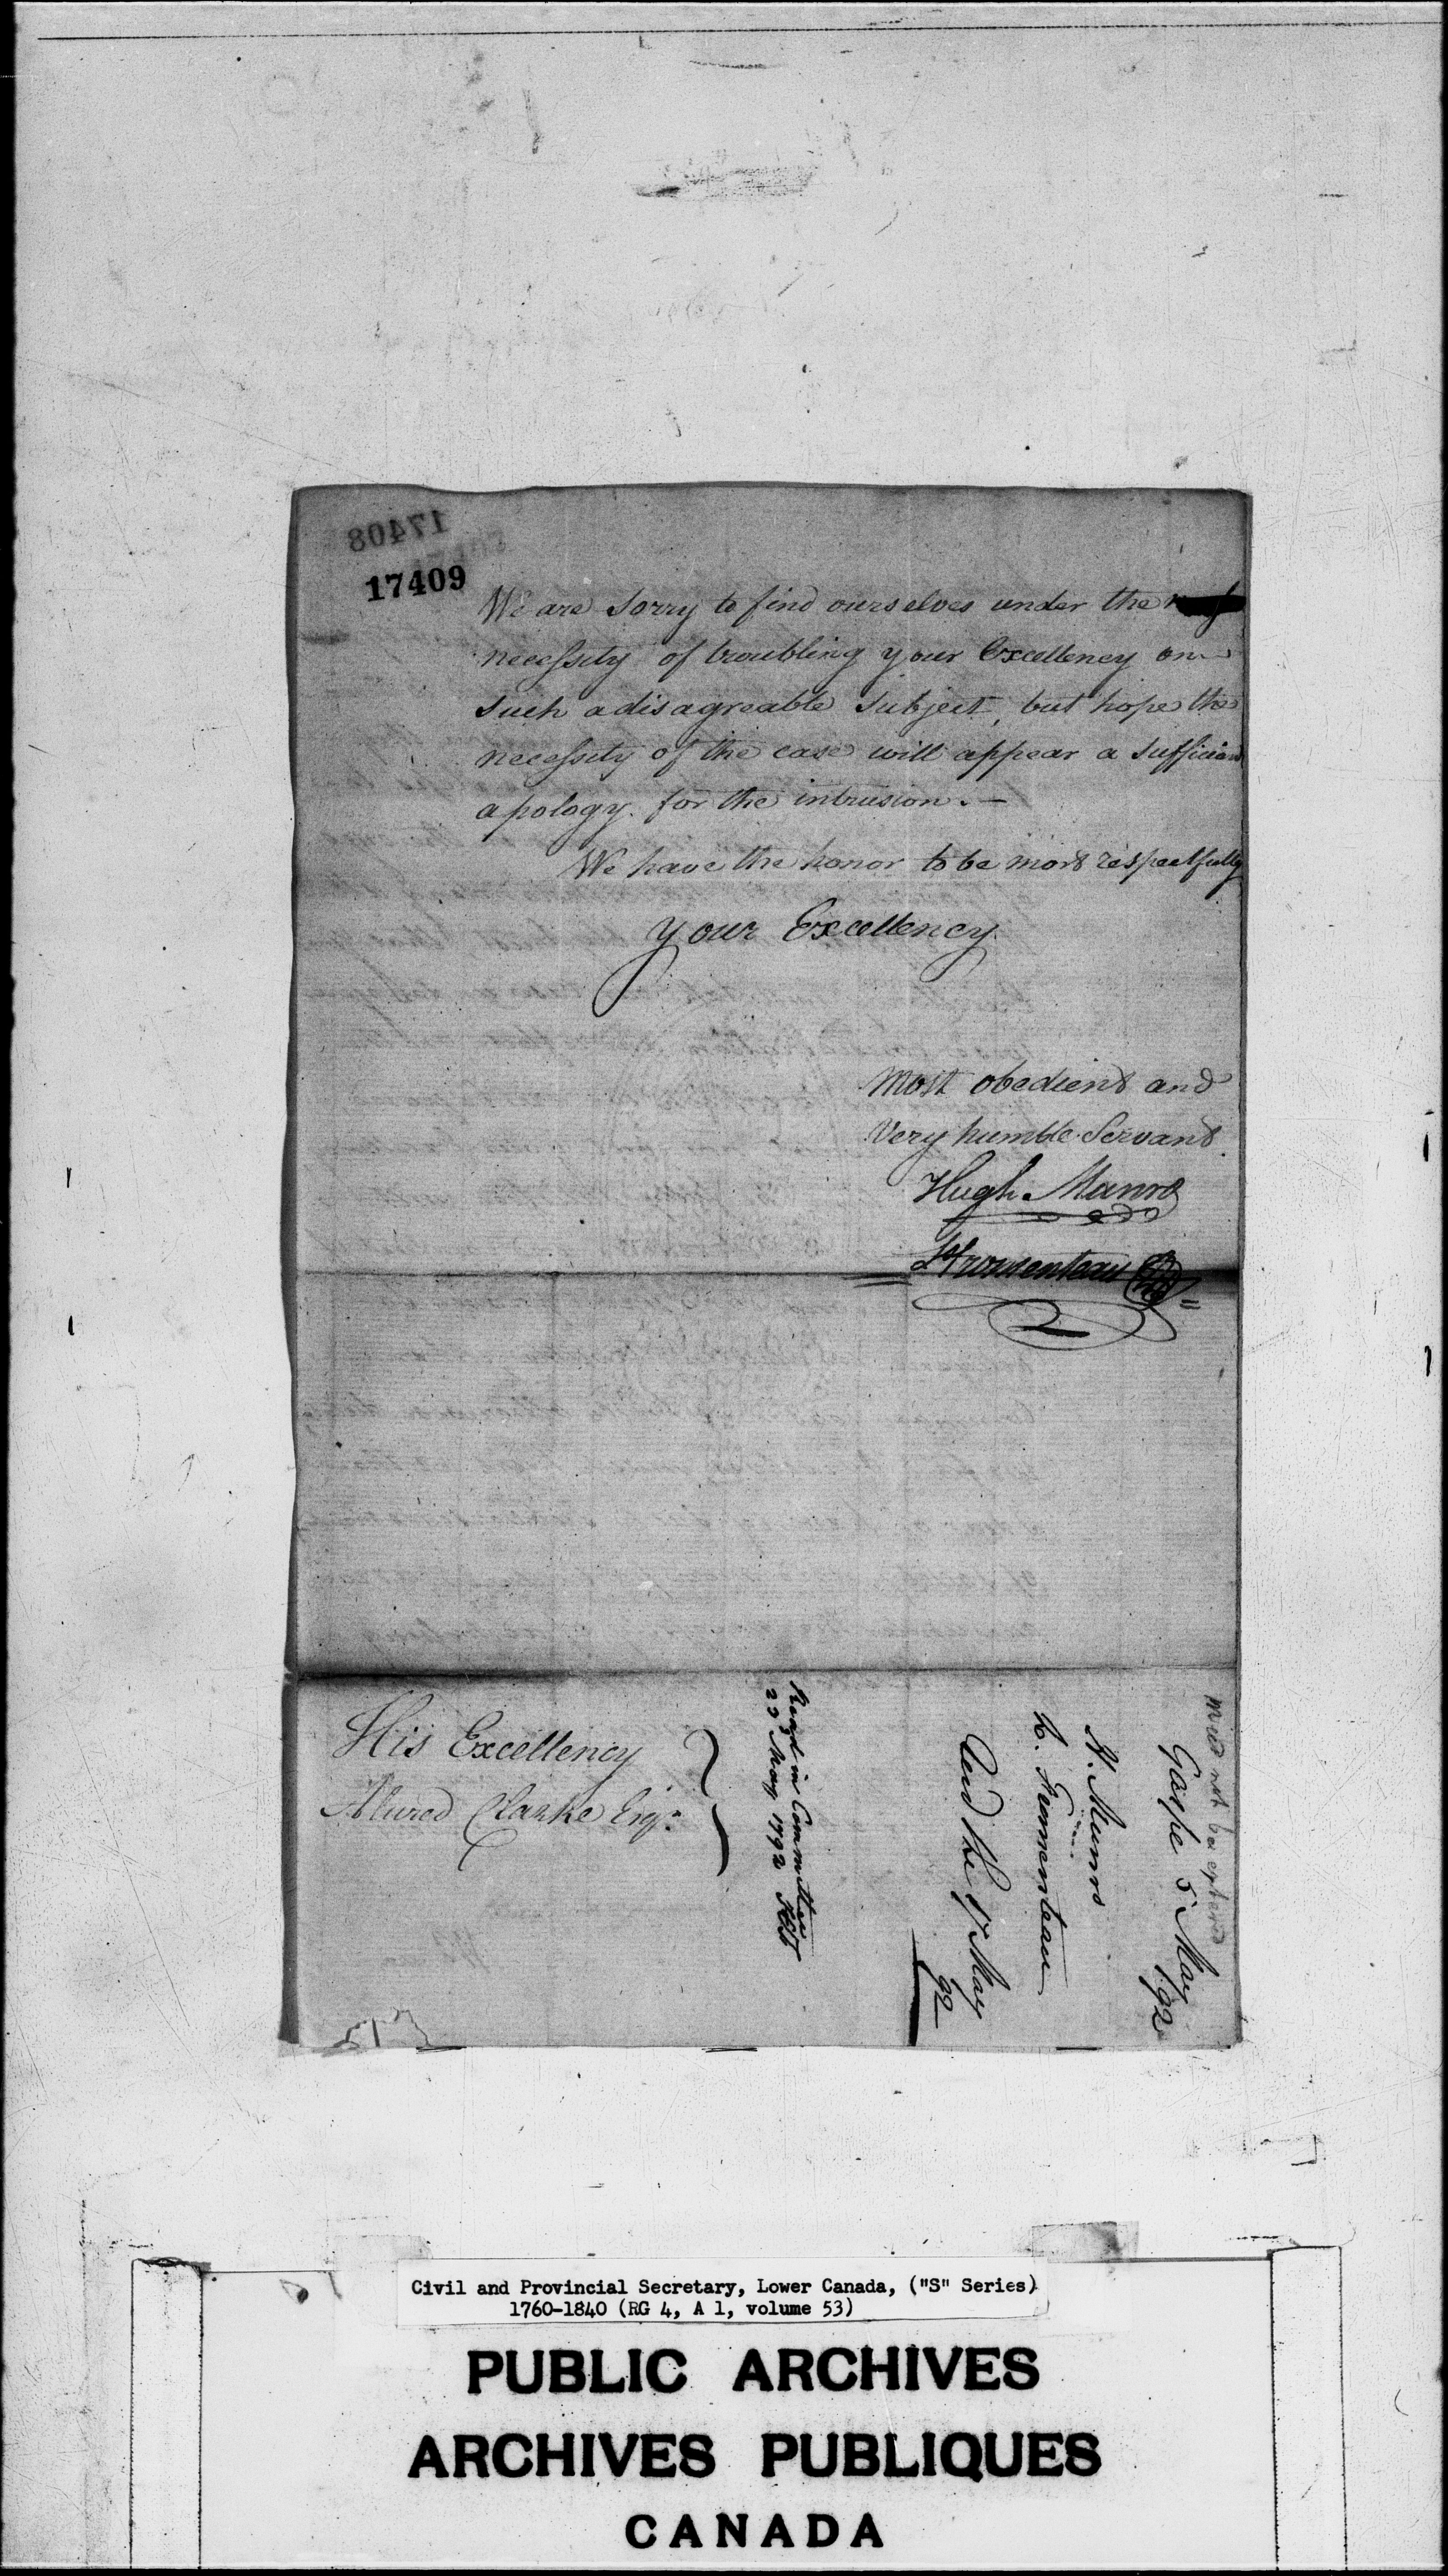 17408
17409
We are sorry to find ourselves under the
necessity of troubling your Excellency on
such a disagreable subject, but hope the
necessity of the case will appear a sufficient
apology for the intrusion. —
We have the honor to be most respectfully
your Excellency
Most obedient and
Very humble Servant.
Hugh Munro
L Fromenteau
His Excellency
Alured Clarke Esqr.
Read in Committee
23 May 1792
And the 17 May
92
L. Fromenteau
H. Munro
Gaspe 5 May
92
not be entered
Civil and Provincial Secretary, Lower Canada, ("S" Series)
1760-1840 (RG 4, A 1, volume 53)
PUBLIC ARCHIVES
ARCHIVES PUBLIQUES
CANADA